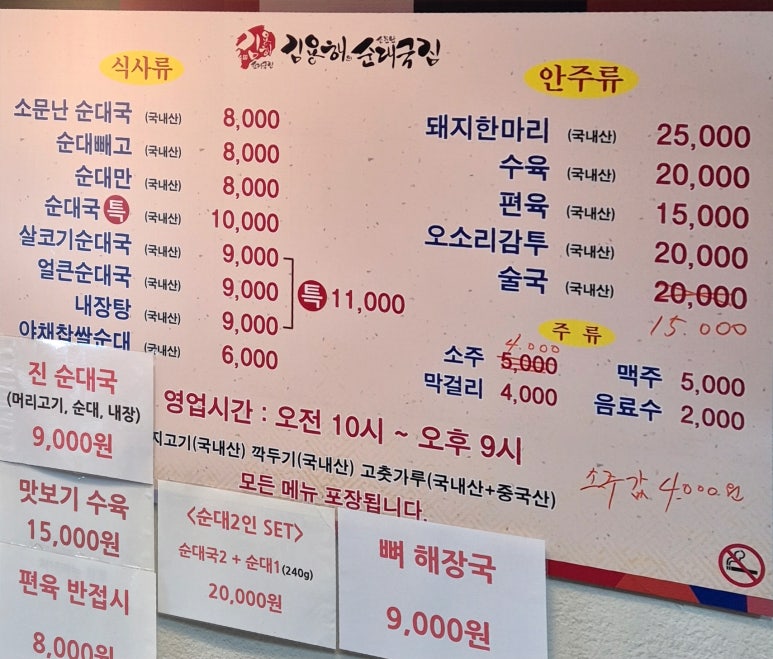 김용해의 소문난 순대국집
식사류
소문난 순대국 (국내산) 8,000
순대빼고 (국내산) 8,000
순대만 (국내산) 8,000
순대국 특 (국내산) 10,000
살코기순대국 (국내산) 9,000
얼큰순대국 (국내산) 9,000
내장탕 (국내산) 9,000
특 11,000
야채찹쌀순대 (국내산) 6,000
안주류
돼지한마리 (국내산) 25,000
수육 (국내산) 20,000
편육 (국내산) 15,000
오소리감투 (국내산) 20,000
술국 (국내산) 20,000
15.000
주류
4.000
소주 5,000
막걸리 4,000
맥주 5,000
음료수 2,000
영업시간 : 오전 10시 ~ 오후 9시
지고기(국내산) 깍두기(국내산) 고춧가루(국내산+중국산)
모든 메뉴 포장됩니다.
소주값 4.000원
진 순대국
(머리고기, 순대, 내장)
9,000원
맛보기 수육
15,000원
편육 반접시
8,000원
<순대2인 SET>
순대국2 + 순대1(240g)
20,000원
뼈 해장국
9,000원